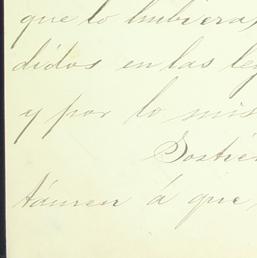 que lo hubiera,
didos en las le
y por lo mis
Sostie
támen á que